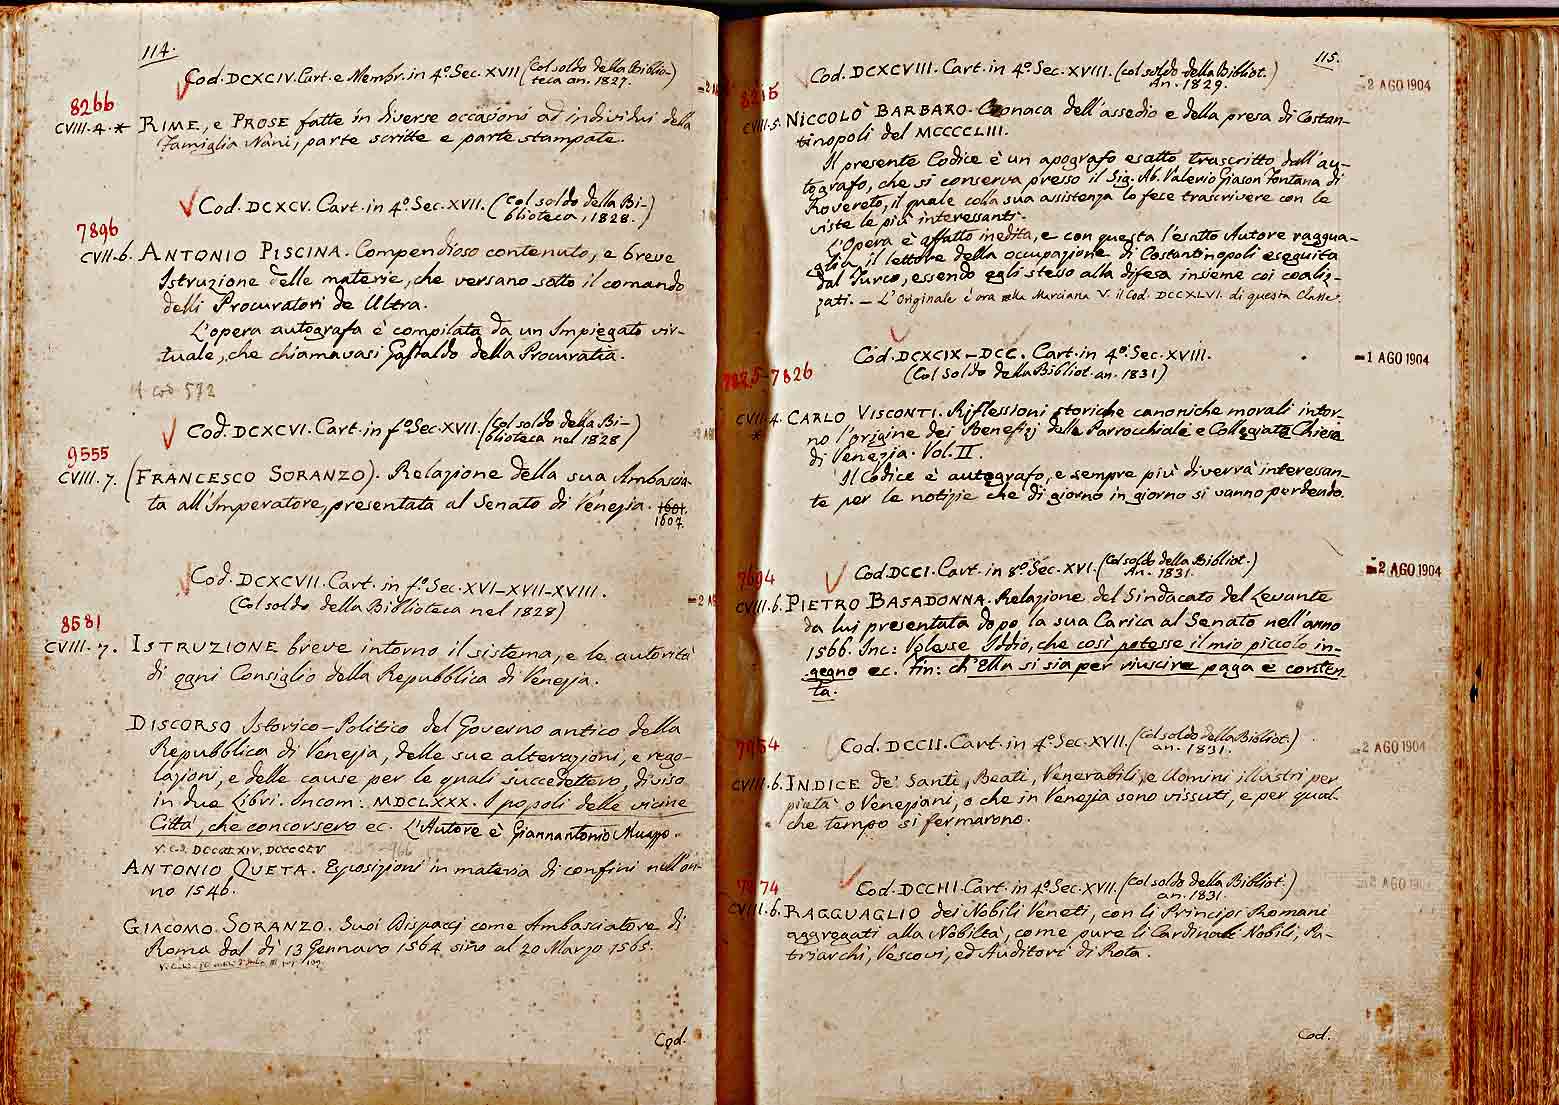 114.
Cod. DCXCIV. Cart. e Membr. in 4º. Sec. XVII (Col soldo della Biblio-
teca an. 1827.)
8266
CVIII. 4. * RIME, e PROSE fatte in diverse occasioni ad individui della
Famiglia Nani, parte scritte e parte stampate.
Cod. DCXCV. Cart. in 4º. Sec. XVII. (Col soldo della Bi-
blioteca, 1828.)
7896
CVII. 6. ANTONIO PISCINA. Compendioso contenuto, e breve
Istruzione delle materie, che versano sotto il comando
delli Procuratori de Ultra.
L'opera autografa è compilata da un Impiegato vir-
tuale, che chiamavasi Gastaldo della Procuratia.
cod 572
Cod. DCXCVI. Cart. in fº. Sec. XVII. (Col soldo della Bi-
blioteca nel 1828)
9555
CVIII. 7. (FRANCESCO SORANZO). Relazione della sua Ambascia-
ta all'Imperatore, presentata al Senato di Venezia. 1601.
1607.
Cod. DCXCVII. Cart. in fº. Sec. XVI-XVII-XVIII.
(Col soldo della Biblioteca nel 1828)
8581
CVIII. 7. ISTRUZIONE breve intorno il sistema, e le autorità
di ogni Consiglio della Repubblica di Venezia.
DISCORSO Istorico-Politico del Governo antico della
Repubblica di Venezia, delle sue alterazioni, e rego-
lazioni, e delle cause per le quali succedettero, diviso
in due Libri. Incom: MDCLXXX. I popoli delle vicine
Città, che concorsero ec. L'Autore è Giannantonio Muazzo.
ANTONIO QUETA. Esposizioni in materia di confini nell'an-
no 1546.
GIACOMO SORANZO. Suoi Dispacci come Ambasciatore di
Roma dal dì 13 Gennaro 1564 sino al 20 Marzo 1565.
Cod.
115.
Cod. DCXCVIII. Cart. in 4º. Sec. XVIII. (Col soldo della Bibliot.
An. 1829.)
2 AGO 1904
8215
CVIII. 5. NICCOLÒ BARBARO. Cronaca dell'assedio e della presa di Costan-
tinopoli del MCCCCLIII.
Il presente Codice è un apografo esatto trascritto dall'au-
tografo, che si conserva presso il Sig. Ab. Valerio Giason Fontana di
Rovereto, il quale colla sua assistenza lo fece trascrivere con le
viste le più interessanti.
L'Opera è affatto inedita, e con questa l'esatto Autore raggua-
glia il lettore della occupazione di Costantinopoli eseguita
dal Turco, essendo egli stesso alla difesa insieme coi coaliz-
zati. — L'Originale è ora nella Marciana V. il Cod. DCCXLVI. di questa Classe.
Cod. DCXCIX-DCC. Cart. in 4º. Sec. XVIII.
(Col Soldo della Bibliot. an. 1831)
1 AGO 1904
7825-7826
CVII. 4. CARLO VISCONTI. Riflessioni storiche canoniche morali intor-
* no l'origine dei Benefizj delle Parrocchiale e Collegiate Chiese
di Venezia. Vol. II.
Il Codice è autografo, e sempre più diverrà interessan-
te per le notizie che di giorno in giorno si vanno perdendo.
Cod. DCCI. Cart. in 8º. Sec. XVI. (Col soldo della Bibliot.
An. 1831.)
2 AGO 1904
7694
CVIII. 6. PIETRO BASADONNA. Relazione del Sindacato del Levante
da lui presentata dopo la sua Carica al Senato nell'anno
1566. Inc: Volesse Iddio, che così potesse il mio piccolo in-
gegno ec. Fin: ch'Ella si sia per riuscire paga e conten-
ta.
Cod. DCCII. Cart. in 4º. Sec. XVII. (Col soldo della Bibliot.
an. 1831.)
2 AGO 1904
7954
CVIII. 6. INDICE de' Santi, Beati, Venerabili, e Uomini illustri per
pietà o Veneziani, o che in Venezia sono vissuti, e per qual-
che tempo si fermarono.
Cod. DCCIII. Cart. in 4º. Sec. XVII. (Col soldo della Bibliot.
an. 1831.)
2 AGO 1904
7874
CVIII. 6. RAGGUAGLIO dei Nobili Veneti, con li Principi Romani
aggregati alla Nobiltà, come pure li Cardinali Nobili, Pa-
triarchi, Vescovi, ed Auditori di Rota.
Cod.